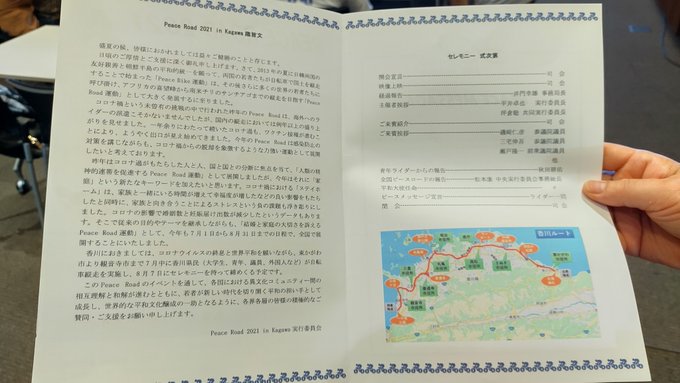 Peace Road 2021 in Kagawa 趣旨文
盛夏の候、皆様におかれましては益々ご健勝のことと存じます。
日頃のご厚情とご支援に深く御礼申し上げます。さて、2013年の夏に日韓両国の
友好親善と朝鮮半島の平和的統一を願って、両国の若者たちが自転車で国土を縦走
することで始まった「Peace Bike運動」は、その後さらに多くの世界の若者たちに
呼び掛け、アフリカの喜望峰から南米チリのサンチアゴまでの縦走を目指す「Peace
Road運動」として大きく発展するに至りました。
コロナ禍という未曽有の逆境の中で行われた昨年のPeace Roadは、海外への
ライダーの派遣こそかないませんでしたが、国内の縦走においては例年以上の盛り上
がりを見せました。一年余りにわたって続いたコロナ過も、ワクチン接種が進むこ
とにより、ようやく出口が見え始めてきました。今年のPeace Roadは感染防止の
対策を講じながらも、コロナ禍からの脱却を象徴するような力強い運動として展開
したいと考えております。
昨年はコロナ禍がもたらした人と人、国と国との分断に焦点を当て、「人類の精
神的連帯を促進するPeace Road運動」として展開しましたが、今年はそれに「家
庭」という新たなキーワードを加えたいと思います。コロナ禍における「ステイホ
ーム」は、家族と一緒にいる時間が増えて幸福度が増したなどの良い影響をもたら
したと同時に、家族と向き合うことによるストレスという負の波紋も浮き彫りにし
ました。コロナの影響で婚姻数と妊娠届け出数が減少したというデータもありま
す。そこで従来の目的やテーマを継承しながらも、「結婚と家庭の大切さを訴える
Peace Road運動」として、今年も7月1日から8月31日までの日程で、全国で展
開することにいたしました。
香川におきましては、コロナウイルスの終息と世界平和を願いながら、東かがわ
市より観音寺市まで7月中に香川県民(大学生、青年、議員、外国人など)が自転
車縦走を実施し、8月7日にセレモニーを持って締めくくる予定です。
このPeace Roadのイベントを通して、各国における異文化コミュニティー間の
相互理解と和解が進むとともに、若者が新しい時代を切り開く平和の担い手として
成長し、世界的な平和文化醸成の一助となるように、各界各層の皆様の積極的なご
賛同・ご支援をお願い申し上げます。
Peace Road 2021 in Kagawa 実行委員会
セレモニー 式次第
開会宣言 司 会
映像上映
経過報告 事務局長
主催者挨拶 平井卓也 実行委員長
共同実行委員長
ご来賓紹介 司 会
ご来賓挨拶 磯崎仁彦 参議院議員
三宅伸吾 参議院議員
瀬戸隆一 前衆議院議員
他
青年ライダーからの報告
全国ピースロードの報告
平和大使任命
ピースメッセージ宣言 ライダー一同
閉 会 司 会
香川ルート